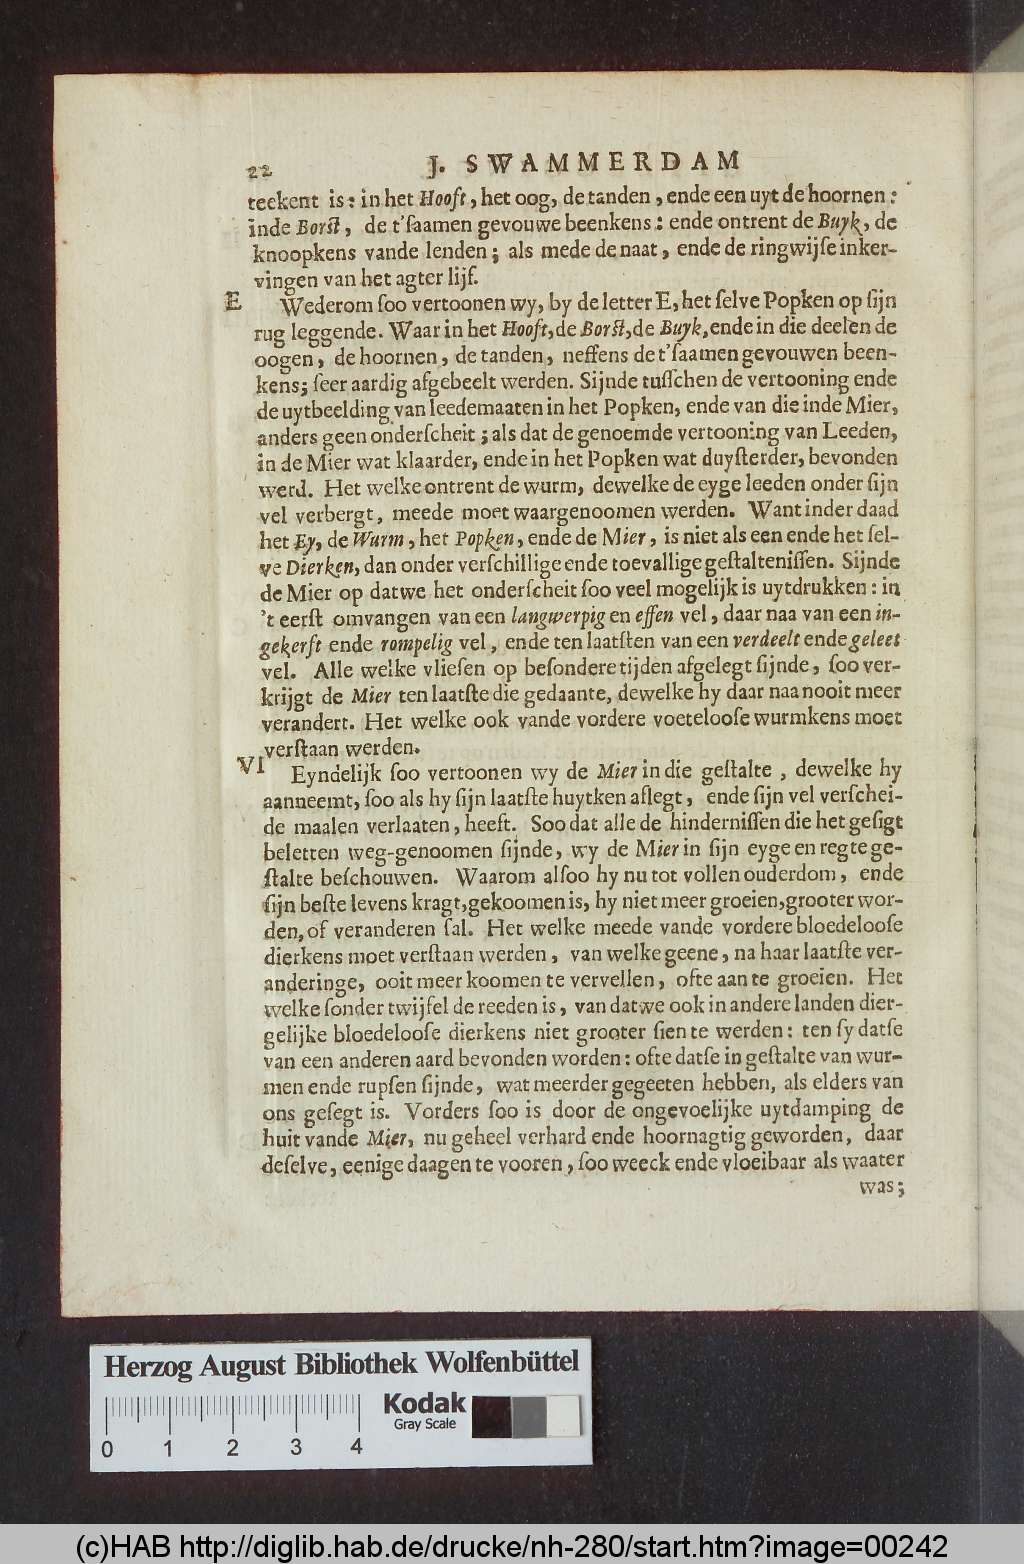 22 J. SWAMMERDAM
teekent is: in het Hooft, het oog, de tanden, ende een uyt de hoornen:
inde Borſt, de t'ſaamen gevouwe beenkens: ende ontrent de Buyk, de
knoopkens vande lenden; als mede de naat, ende de ringwijſe inker-
vingen van het agter lijf.
E Wederom ſoo vertoonen wy, by de letter E, het ſelve Popken op ſijn
rug leggende. Waar in het Hooft, de Borſt, de Buyk, ende in die deelen de
oogen, de hoornen, de tanden, neffens de t'ſaamen gevouwen been-
kens; ſeer aardig afgebeelt werden. Sijnde tuſſchen de vertooning ende
de uytbeelding van leedemaaten in het Popken, ende van die inde Mier,
anders geen onderſcheit; als dat de genoemde vertooning van Leeden,
in de Mier wat klaarder, ende in het Popken wat duyſterder, bevonden
werd. Het welke ontrent de wurm, dewelke de eyge leeden onder ſijn
vel verbergt, meede moet waargenoomen werden. Want inder daad
het Ey, de Wurm, het Popken, ende de Mier, is niet als een ende het ſel-
ve Dierken, dan onder verſchillige ende toevallige geſtalteniſſen. Sijnde
de Mier op dat we het onderſcheit ſoo veel mogelijk is uytdrukken: in
't eerſt omvangen van een langwerpig en effen vel, daar naa van een in-
gekerft ende rompelig vel, ende ten laatſten van een verdeelt ende geleet
vel. Alle welke vlieſen op beſondere tijden afgelegt ſijnde, ſoo ver-
krijgt de Mier ten laatſte die gedaante, dewelke hy daar naa nooit meer
verandert. Het welke ook vande vordere voeteloofe wurmkens moet
verſtaan werden.
VI Eyndelijk ſoo vertoonen wy de Mier in die geſtalte, dewelke hy
aanneemt, ſoo als hy ſijn laatſte huytken aflegt, ende ſijn vel verſchei-
de maalen verlaaten, heeft. Soo dat alle de hinderniſſen die het geſigt
beletten weg-genoomen ſijnde, wy de Mier in ſijn eyge en regte ge-
ſtalte beſchouwen. Waarom alſoo hy nu tot vollen ouderdom, ende
ſijn beſte levens kragt, gekoomen is, hy niet meer groeien, grooter wor-
den, of veranderen ſal. Het welke meede vande vordere bloedelooſe
dierkens moet verſtaan werden, van welke geene, na haar laatſte ver-
anderinge, ooit meer koomen te vervellen, ofte aan te groeien. Het
welke ſonder twijfel de reeden is, van dat we ook in andere landen dier-
gelijke bloedelooſe dierkens niet grooter ſien te werden: ten ſy datſe
van een anderen aard bevonden worden: ofte datſe in geſtalte van wur-
men ende rupſen ſijnde, wat meerder gegeeten hebben, als elders van
ons geſegt is. Vorders ſoo is door de ongevoelijke uytdamping de
huit vande Mier, nu geheel verhard ende hoornagtig geworden, daar
deſelve, eenige daagen te vooren, ſoo weeck ende vloeibaar als waater
was;
Herzog August Bibliothek Wolfenbüttel
Kodak
Gray Scale
0 1 2 3 4
(c)HAB http://diglib.hab.de/drucke/nh-280/start.htm?image=00242